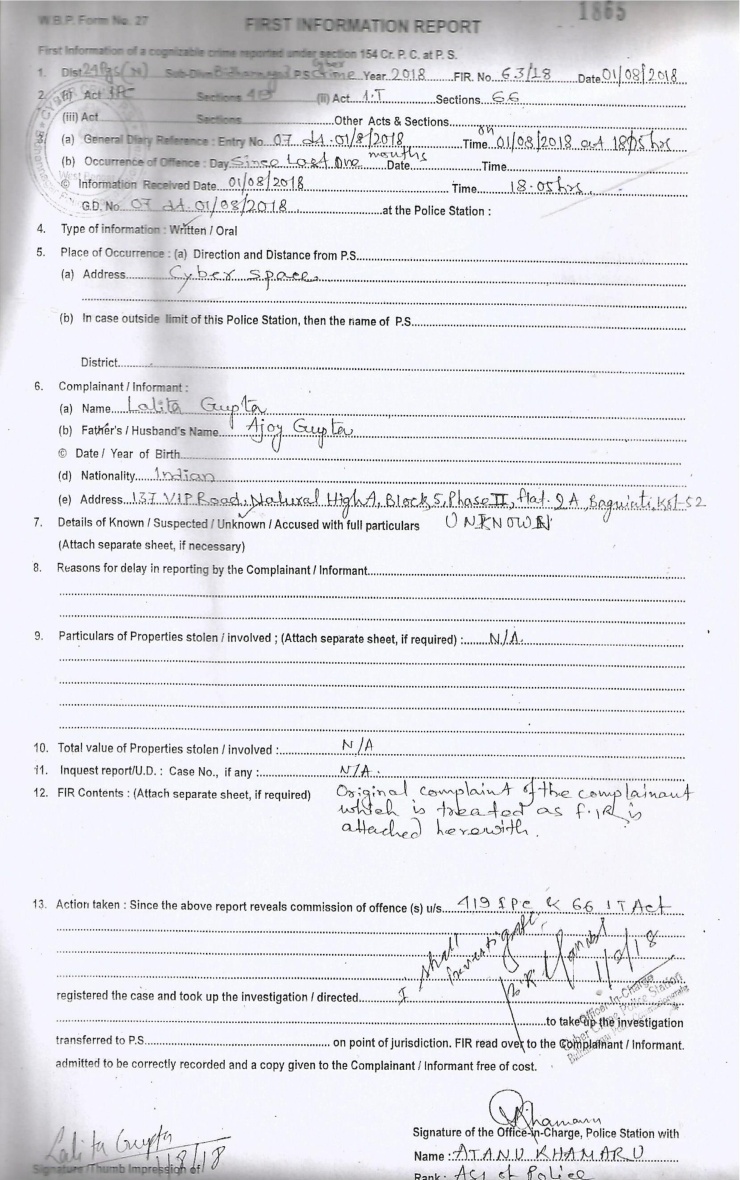 1865
W.B.P. Form No. 27
FIRST INFORMATION REPORT
First Information of a cognizable crime reported under section 154 Cr. P. C. at P. S.
1. Dist 24 Pgs (N) Sub-Divn P.S. Cyber Crime Year 2018 FIR. No. 63/18 Date 01/08/2018
2. (i) Act IPC Sections 419 (ii) Act I.T Sections 66
(iii) Act Sections Other Acts & Sections
3. (a) General Diary Reference : Entry No. 07 dt. 01/8/2018 Time on 01/08/2018 at 1805 hrs
(b) Occurrence of Offence : Day Since Last One months Date Time
© Information Received Date 01/08/2018 Time 18.05 hrs.
G.D. No. 07 dt. 01/08/2018 at the Police Station :
4. Type of information : Written / Oral
5. Place of Occurrence : (a) Direction and Distance from P.S.
(a) Address Cyber Space.
(b) In case outside limit of this Police Station, then the name of P.S.
District
6. Complainant / Informant :
(a) Name Lalita Gupta
(b) Father's / Husband's Name Ajoy Gupta
© Date / Year of Birth
(d) Nationality Indian
(e) Address 137 VIP Road, Natural High, Block 5, Phase II, Flat. 2A, Baguiati, Kol-52
7. Details of Known / Suspected / Unknown / Accused with full particulars UNKNOWN
(Attach separate sheet, if necessary)
8. Reasons for delay in reporting by the Complainant / Informant
9. Particulars of Properties stolen / involved ; (Attach separate sheet, if required) : N/A.
10. Total value of Properties stolen / involved : N/A
11. Inquest report/U.D. : Case No., if any : N/A.
12. FIR Contents : (Attach separate sheet, if required) Original complaint of the complainant
which is treated as F.IR is
attached herewith.
13. Action taken : Since the above report reveals commission of offence (s) u/s. 419 IPC & 66 IT Act
I shall
investigate.
1/8/18
registered the case and took up the investigation / directed
Officer-In-Charge
Cyber Crime Police Station
to take up the investigation
transferred to P.S. on point of jurisdiction. FIR read over to the Complainant / Informant.
admitted to be correctly recorded and a copy given to the Complainant / Informant free of cost.
Lalita Gupta
1/8/18
Signature/Thumb Impression of
Signature of the Office-in-Charge, Police Station with
Name : ATANU KHAMARU
Rank : ACI of Police